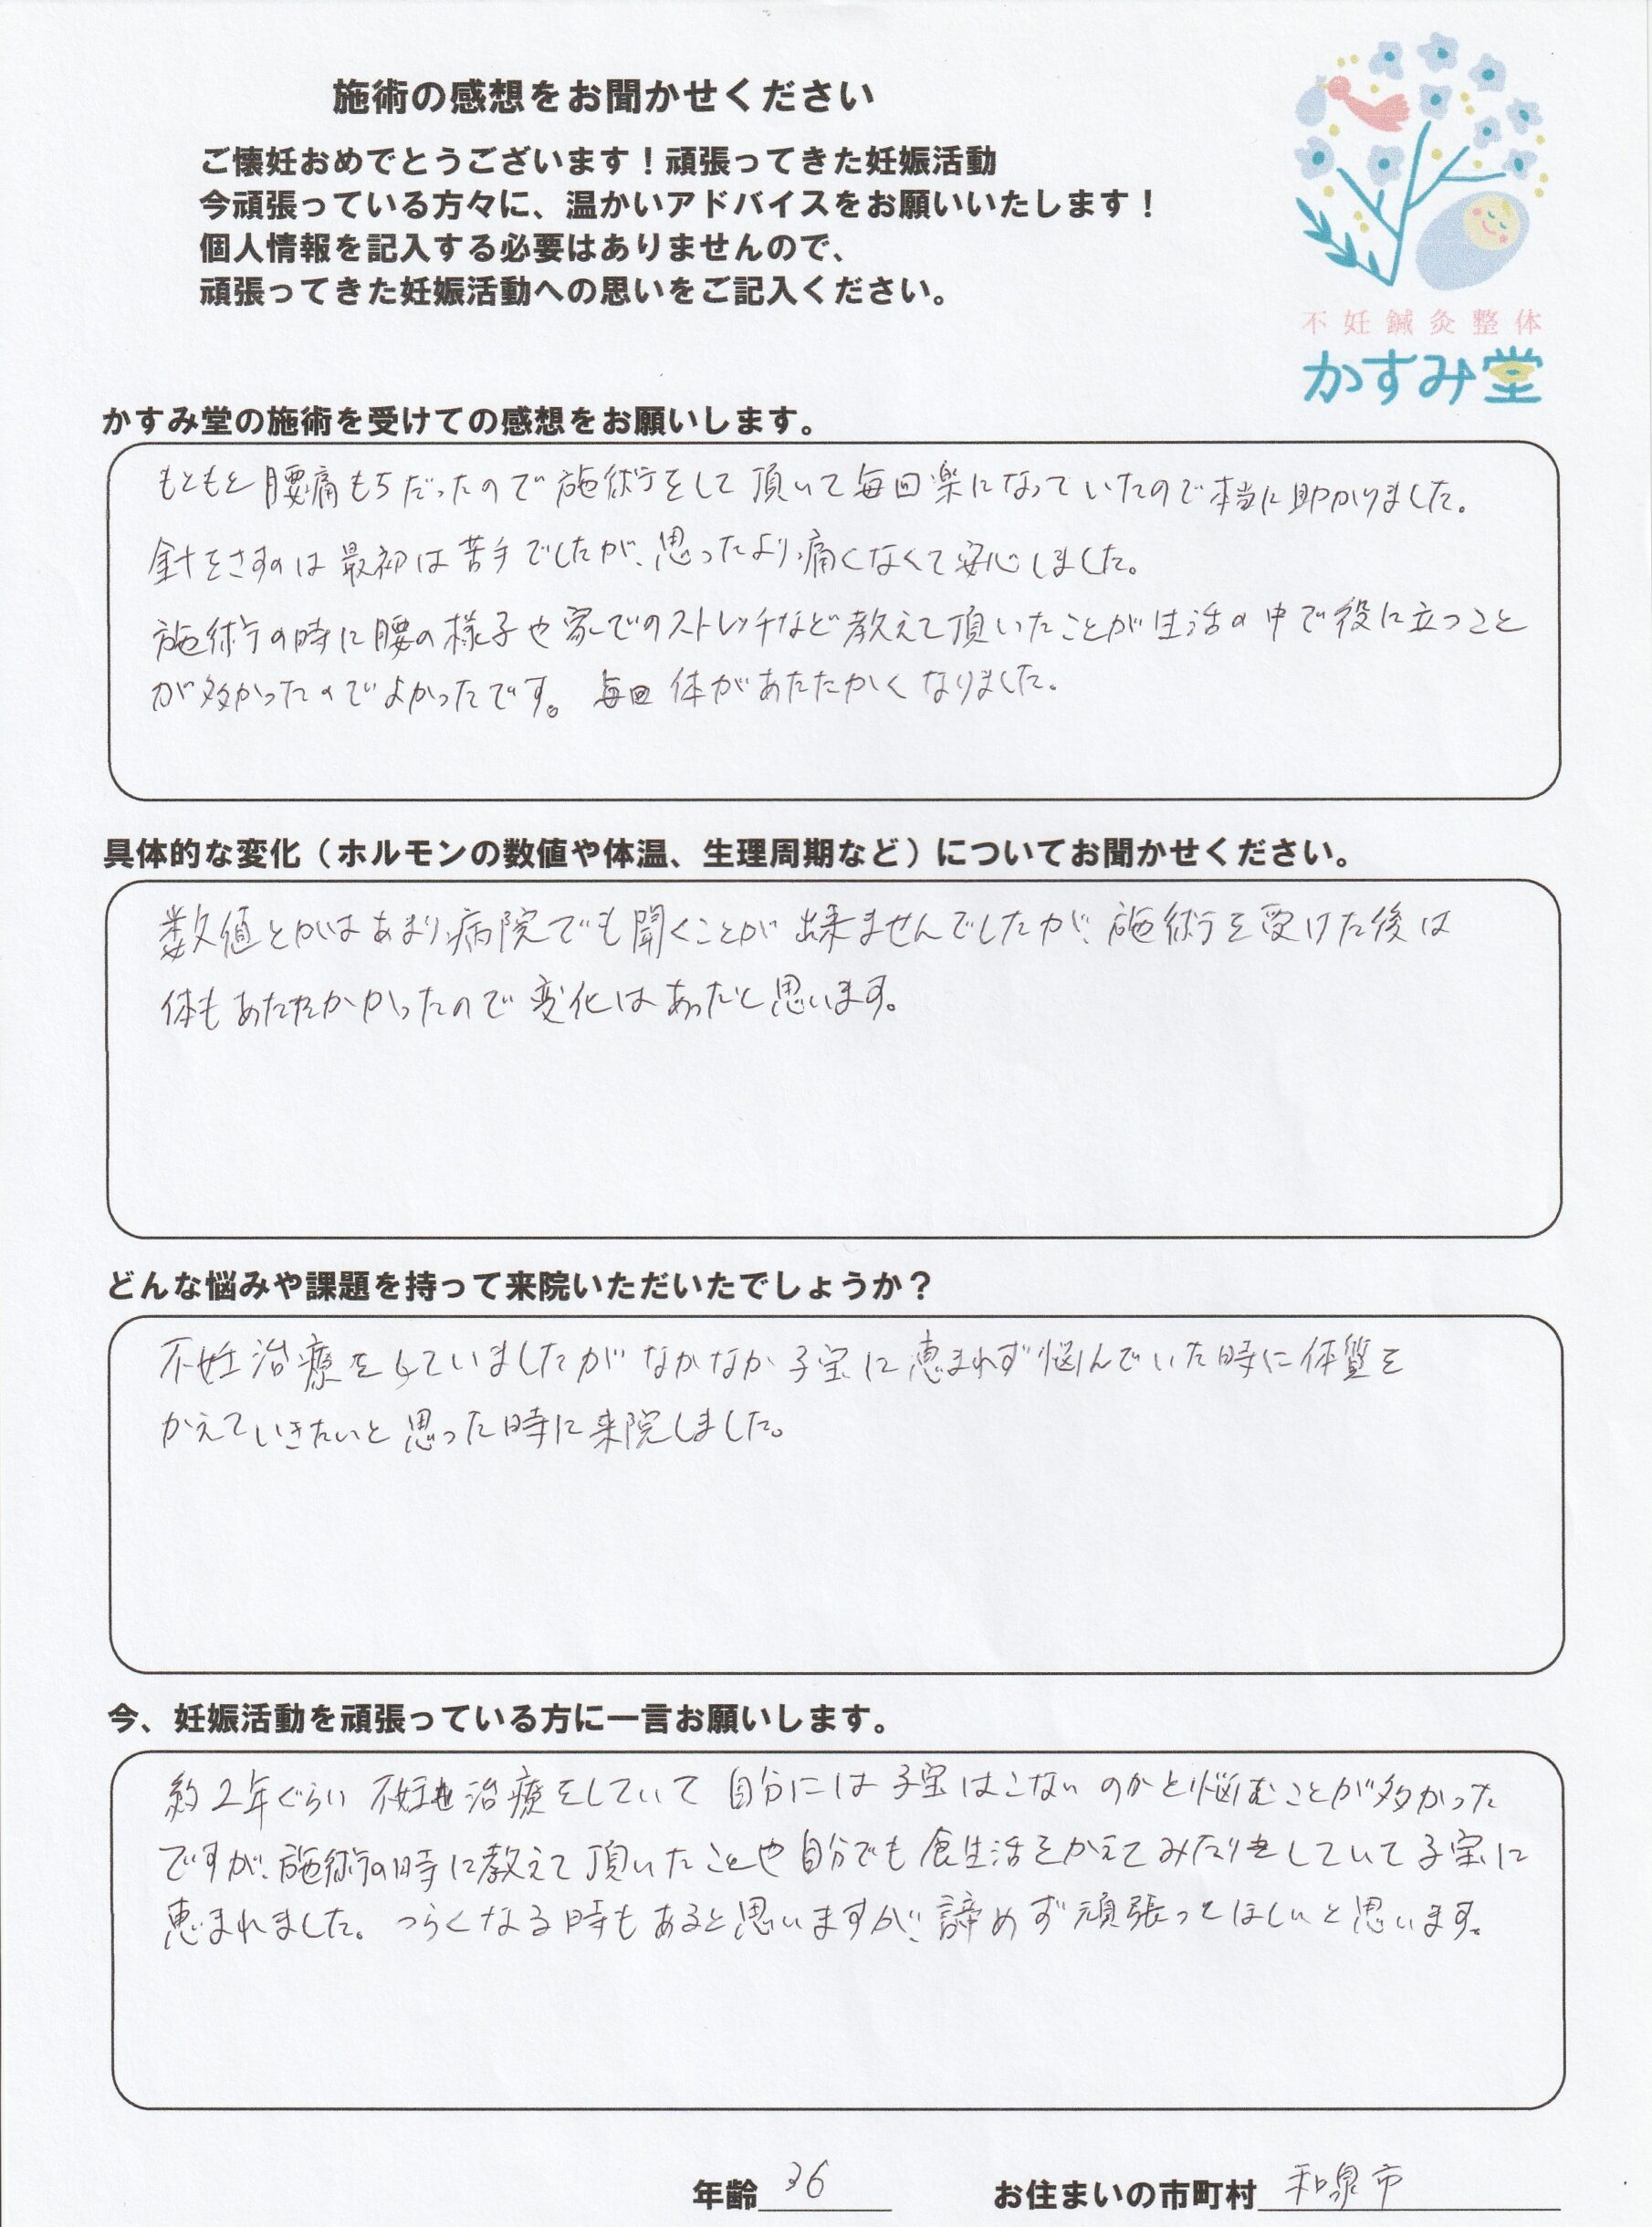 施術の感想をお聞かせください
ご懐妊おめでとうございます！頑張ってきた妊娠活動
今頑張っている方々に、温かいアドバイスをお願いいたします！
個人情報を記入する必要はありませんので、
頑張ってきた妊娠活動への思いをご記入ください。
不妊鍼灸整体
かすみ堂
かすみ堂の施術を受けての感想をお願いします。
もともと腰痛もちだったので施術をして頂いて毎回楽になっていたので本当に助かりました。
針をさすのは最初は苦手でしたが、思ったより痛くなくて安心しました。
施術の時に腰の様子や家でのストレッチなど教えて頂いたことが生活の中で役に立つこと
が多かったのでよかったです。毎回体があたたかくなりました。
具体的な変化（ホルモンの数値や体温、生理周期など）についてお聞かせください。
数値とかはあまり病院でも聞くことが出来ませんでしたが、施術を受けた後は
体もあたたかかったので変化はあったと思います。
どんな悩みや課題を持って来院いただいたでしょうか？
不妊治療をしていましたがなかなか子宝に恵まれず悩んでいた時に体質を
かえていきたいと思った時に来院しました。
今、妊娠活動を頑張っている方に一言お願いします。
約2年ぐらい不妊治療をしていて自分には子宝はこないのかと悩むことが多かった
ですが、施術の時に教えて頂いたことや自分でも食生活をかえてみたりをしていて子宝に
恵まれました。つらくなる時もあると思いますが、諦めず頑張ってほしいと思います。
年齢 36 お住まいの市町村 和泉市